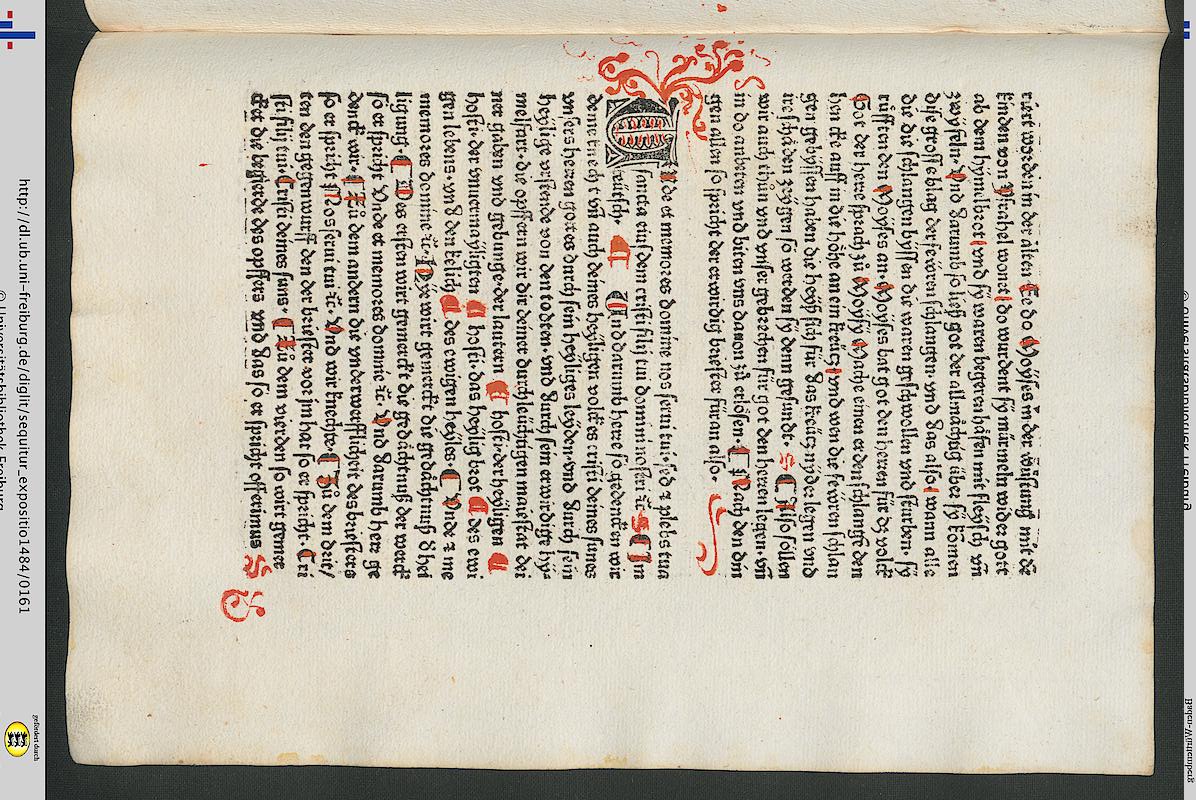 riert worden in der alten Ee do Moyses in der wüstung mit dē
kinden von Israhel wonet do wurdent sy mürmeln wider gott
ab dem hymelbrot vnd sy waren begeren häfen mit fleysch vn̄
zwyfeln. Vnd darumb so ließ got der allmächtig über sy kōmen
dise grosse blag der fewren schlangen. vnd das also wann alle
die die schlangen byssen die waren geschwollen vnd sturben. sy
rüfften den Moyses an. Moyses bat got den herren für dz volck
Got der herre sprach zů Moysy Mache einen erden schlange den
hencke auff in die höhe an ein kreütz vnd wen die fewren schlan
gen gebyssen haben die söllen sich für das kreütz nyder legen vnd
ire schäden zeygen so werden sy denn gesundt. Also söllen
wir auch thůn vnd vnser gebrechen für got den herren legen. vn̄
in do anbeten vnd biten vns dauon zů erlösen. Nach den din
gen allen so spricht der erwirdig briester für an also.
Unde et memores domine nos serui tui. sed et plebs tua
sancta eiusdem cristi filij tui domini nostri ꝛc. Im
teütsch. Und darumb herre so gedencken wir
deine knecht vn̄ auch deines heyligen volckes cristi deines sunes
vnsers herren gottes durch sein heyliges leyden. vnd durch sein
heylige vrstende von den todten. vnd durch sein erwirdige hym
melfart. die opffern wir dir deiner durchleüchtigen maiestat dei
ner gaben vnd gebunge. der lautern hosti. der heyligen
hosti. der vnuermayligten hosti. das heylig brot des ewi
gen lebens. vn̄ den kelich des ewigen heyles. Unde et me
mores domine ꝛc. Hye wirt gemerckt die gedächtnuß d hei
ligung. Des ersten wirt gemerckt die gedächtnuß der werck
so er spricht Unde et memores domine ꝛc. Vnd darumb herr ge
denck wir. Zů dem andern die vnderwerfflicheit des briesters
so er spricht Nos serui tui ꝛc. Vnd wir knechte. Zů dem drit/
ten den gegenwurff den der briester vor im hat so er spricht. Cri
sti filij tui. Cristi deines suns. Zů dem vierden so wirt gemer
cket die begierde des opffers vnd das so er spricht offerimus
http://dl.ub.uni-freiburg.de/diglit/sequitur_expositio1484/0161
© Universitätsbibliothek Freiburg
gefördert durch